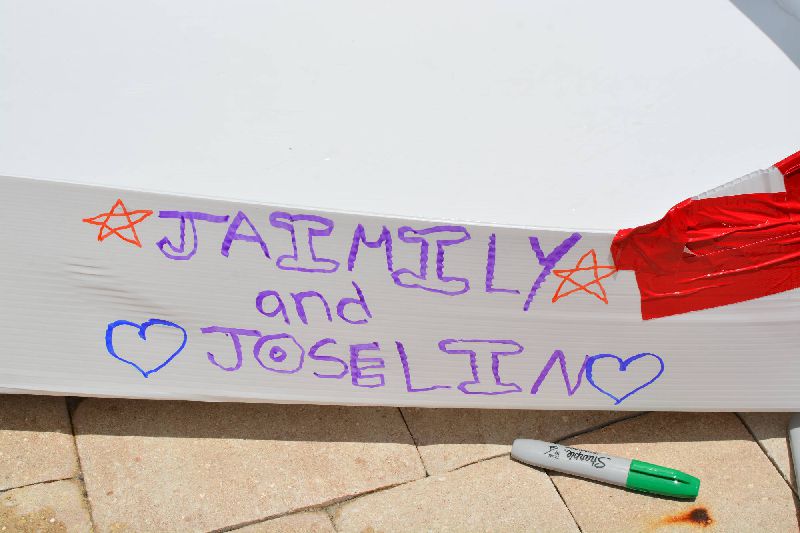 JAIMILY
and
JOSELIN
Sharpie